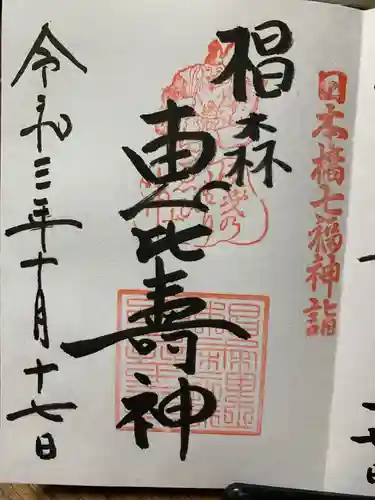 日本橋七福神詣
椙森
恵比寿神
令和三年十月十七日